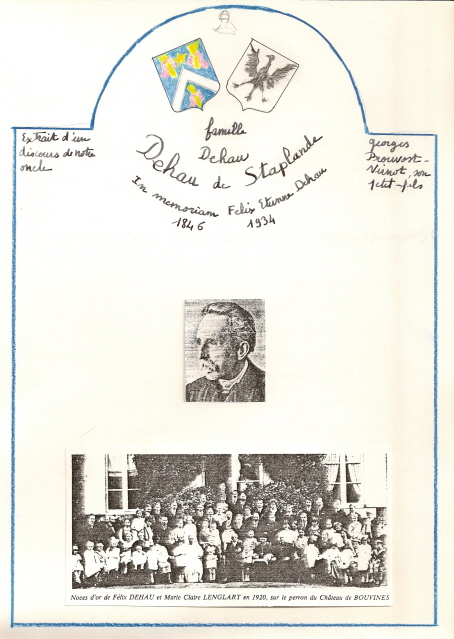 Extrait d'un
discours de notre
oncle
georges
Prouvost-
Virnot, son
petit-fils
famille
Dehau
Dehau de Staplande
In memoriam Felix Etienne Dehau
1846 1934
Noces d'or de Félix DEHAU et Marie Claire LENGLART en 1920, sur le perron du Château de BOUVINES